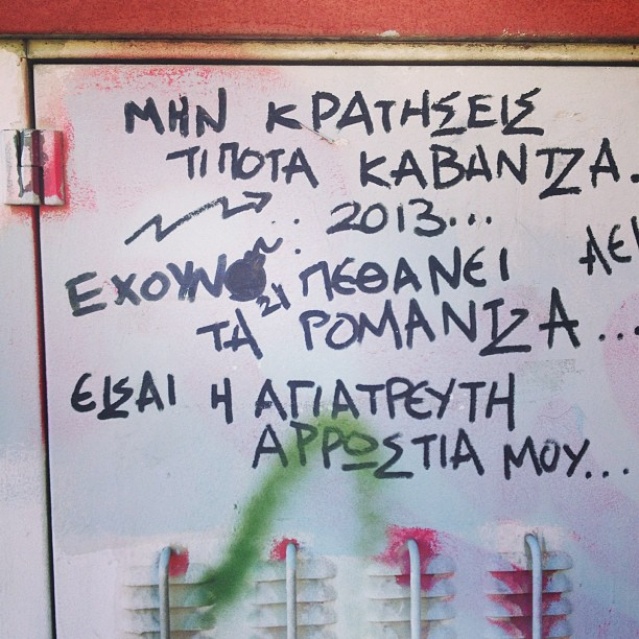 ΜΗΝ ΚΡΑΤΗΣΕΙΣ
ΤΙΠΟΤΑ ΚΑΒΑΝΤΖΑ.
.. 2013...
ΕΧΟΥΝ ΠΕΘΑΝΕΙ
21
ΤΑ ΡΟΜΑΝΤΖΑ...
ΕΙΣΑΙ Η ΑΓΙΑΤΡΕΥΤΗ
ΑΡΡΩΣΤΙΑ ΜΟΥ...